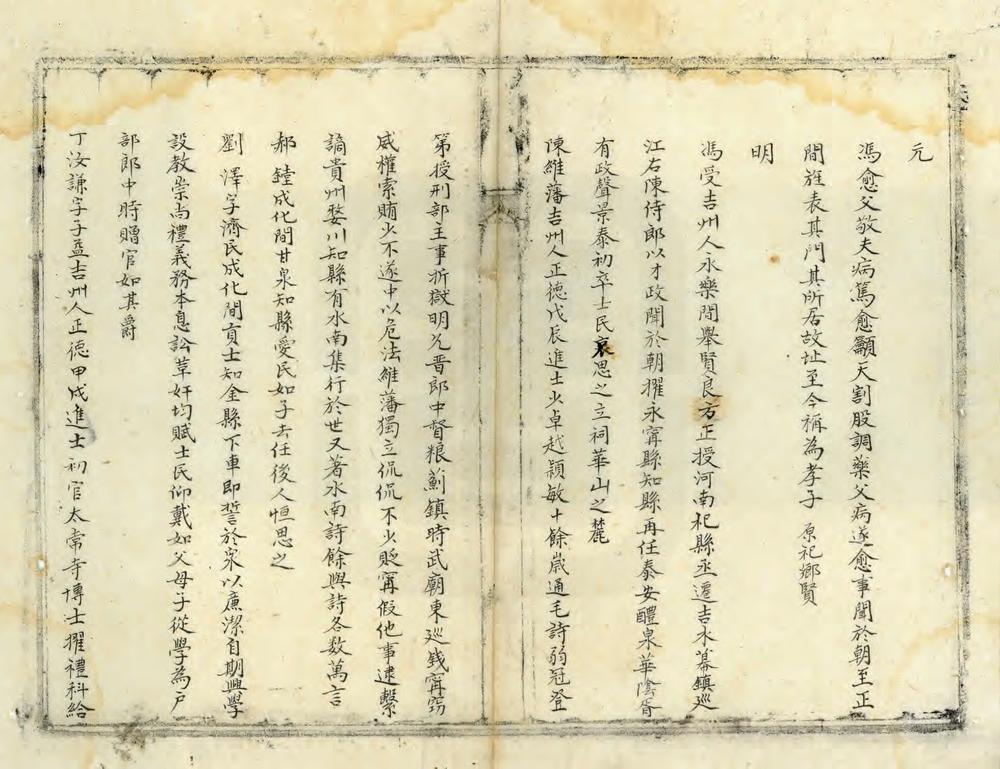 元
馮愈父敬夫病篤愈籲天割股調藥父病遂愈事聞於朝至正
間旌表其門其所居故址至今稱為孝子 原祀鄉賢
明
馮受吉州人永樂間舉賢良方正授河南杞縣丞遷吉水幕鎮巡
江右陳侍郎以才政聞於朝擢永寧縣知縣再任泰安醴泉華陰胥
有政聲景泰初卒士民哀思之立祠華山之麓
陳維藩吉州人正德戊辰進士少卓越穎敏十餘歲通毛詩弱冠登
第授刑部主事折獄明允晋郎中督粮薊鎮時武廟東巡錢寗窃
威權索賄少不遂中以危法維藩獨立侃侃不少貶寗假他事逮繫
謫貴州婺川知縣有水南集行於世又著水南詩餘與詩各数萬言
郝鏜成化間甘泉知縣愛民如子去任後人恒思之
劉澤字濟民成化間貢士知金縣下車即誓於泉以廉潔自期興學
設教崇尚禮義務本息訟革奸均賦士民仰戴如父母子從學為户
部郎中時贈官如其爵
丁汝謙字子益吉州人正德甲戍進士初官太常寺博士擢禮科給